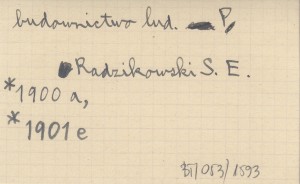 budownictwo lud. P,
Radzikowski S. E.
*1900 a,
*1901 e
/053/1593